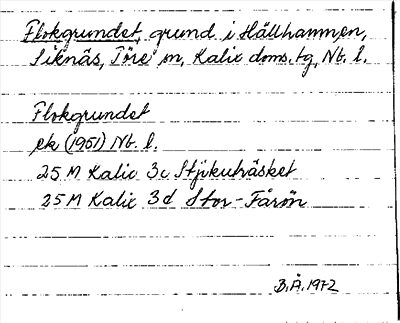 Flokgrundet, grund i Hällhamnen,
Siknäs, Töre sn, Kalix doms. tg, Nb. l.
Flokgrundet
ek (1961) Nb. l.
25 M Kalix 3c Stjikuträsket
25 M Kalix 3d Stor-Fårön
B.Å. 1972